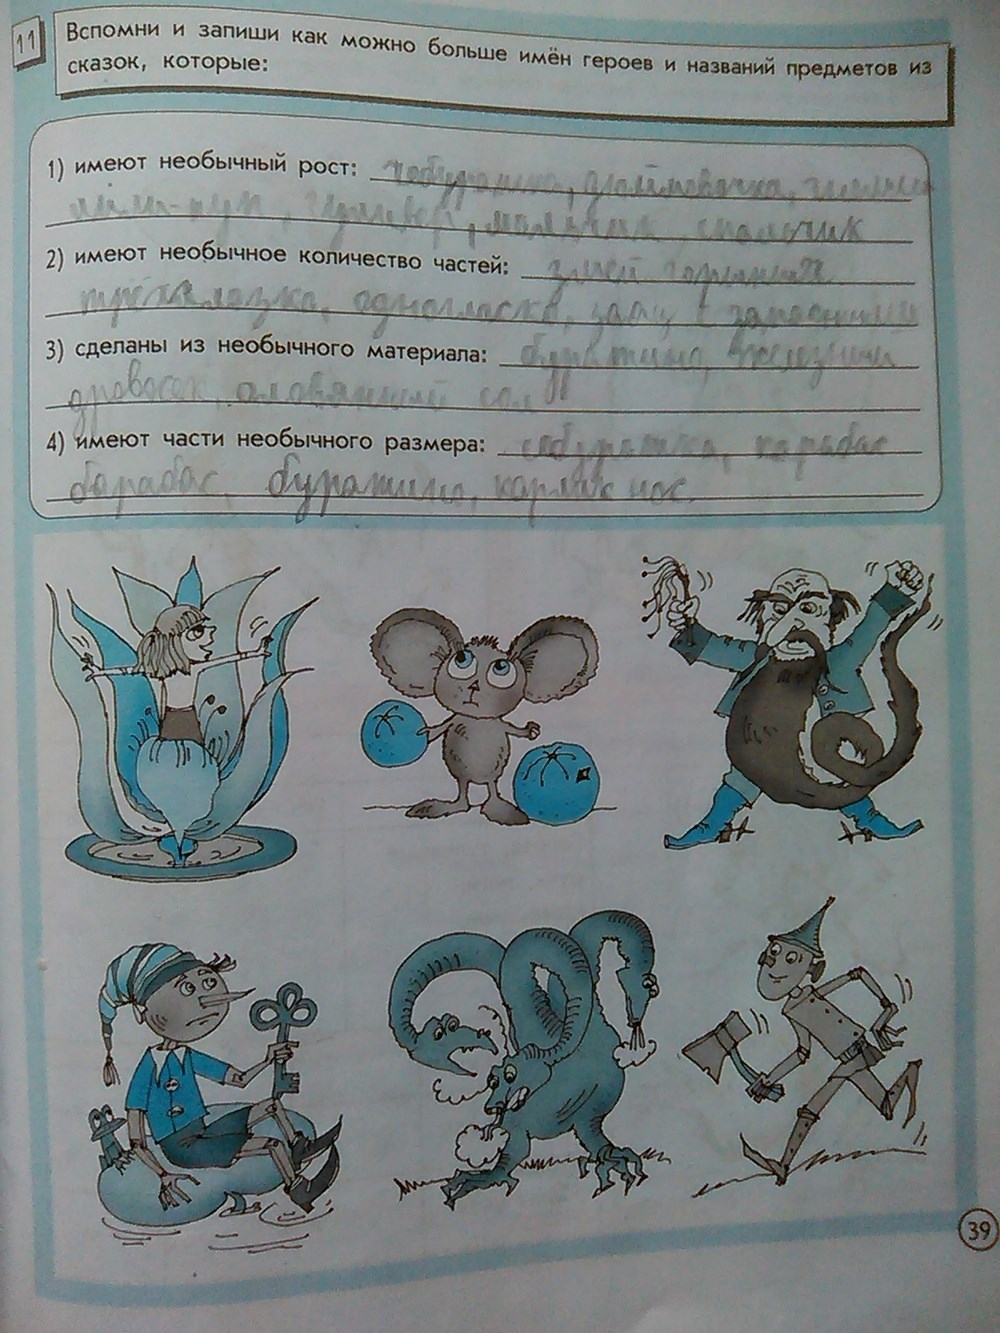 11
Вспомни и запиши как можно больше имён героев и названий предметов из
сказок, которые:
1) имеют необычный рост: чебурашка, дюймовочка,
гулливер, мальчик спальчик
2) имеют необычное количество частей: змей горыныч
трёхглазка, одноглазка, заяц с
3) сделаны из необычного материала: буратино, железный
дровосек, оловянный сол
4) имеют части необычного размера: чебурашка, карабас
барабас, буратино, карлик нос.
39